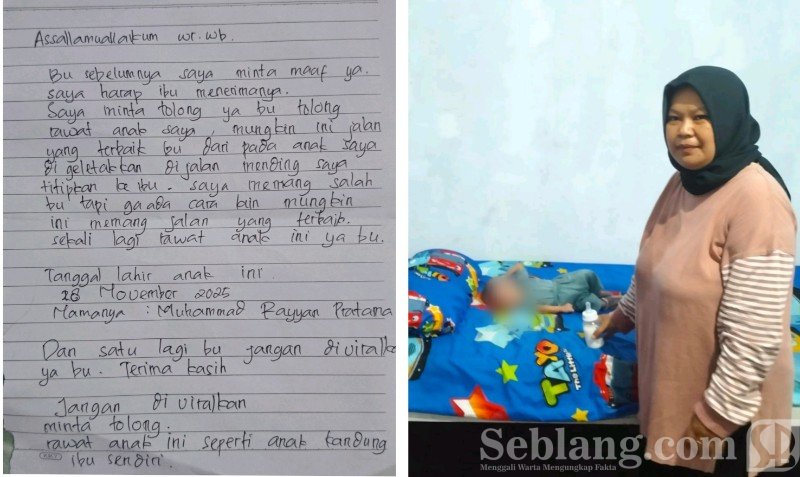 Assallamuallaikum wr.wb.
Bu sebelumnya saya minta maaf ya.
saya harap ibu menerimanya.
Saya minta tolong ya bu tolong
rawat anak saya, mungkin ini jalan
yang terbaik bu dari pada anak saya
di geletakkan di jalan mending saya
titipkan ke ibu. saya memang salah
bu tapi ga ada cara lain mungkin
ini memang jalan yang terbaik.
sekali lagi rawat anak ini ya bu.
Tanggal lahir anak ini
28 November 2025
Namanya : Muhammad Rayyan Pratama
Dan satu lagi bu jangan diviralk
ya bu. Terima kasih
Jangan di viralkan
minta tolong.
rawat anak ini seperti anak kandung
ibu sendiri.
KKY
TAYO
THE LITTLE
Seblang.com
Menggali Warta Mengungkap Fakta